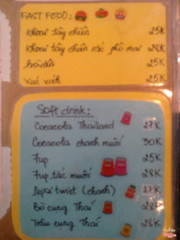 FACT FOOD:
Khoai tây chiên 25K
Khoai tây chiên lắc phô mai 28K
25K
Xúc xích 25K
Soft drink:
Cocacola Thailand 27K
Cocacola chanh muối 30K
Fup 25K
Fup tắc muối 28K
twist (chanh) 27K
Bò cụng Thái 28K
Thái 28K